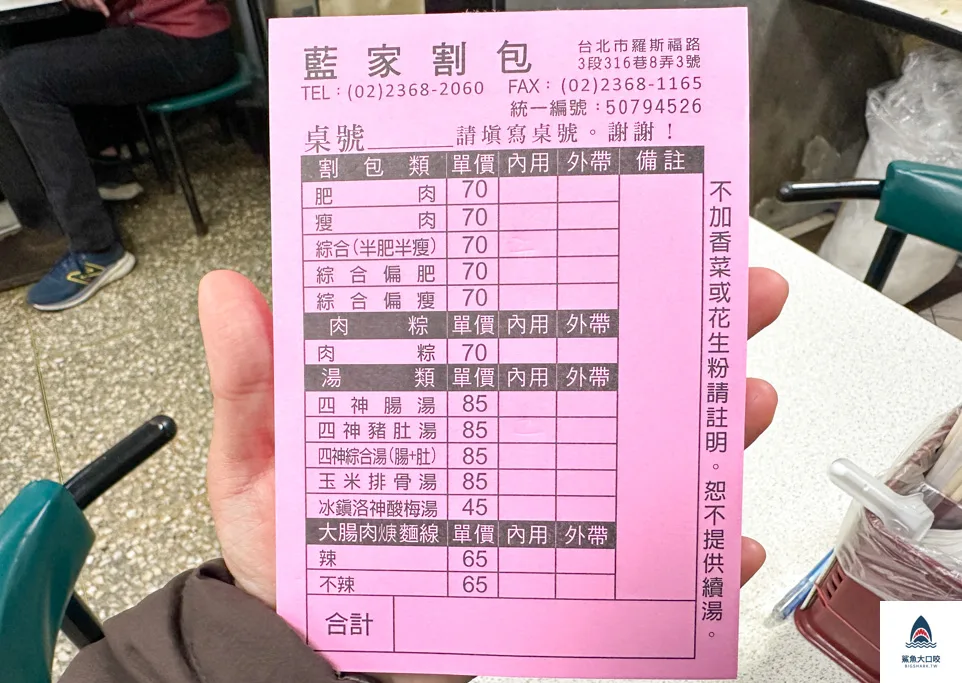 藍家割包
台北市羅斯福路
3段316巷8弄3號
TEL：(02)2368-2060 FAX：(02)2368-1165
統一編號：50794526
桌號______請填寫桌號。謝謝！
割包類 單價 內用 外帶 備註
肥肉 70
瘦肉 70
綜合(半肥半瘦) 70
綜合偏肥 70
綜合偏瘦 70
肉粽 單價 內用 外帶
肉粽 70
湯類 單價 內用 外帶
四神腸湯 85
四神豬肚湯 85
四神綜合湯(腸+肚) 85
玉米排骨湯 85
冰鎮洛神酸梅湯 45
大腸肉焿麵線 單價 內用 外帶
辣 65
不辣 65
合計
不加香菜或花生粉請註明。恕不提供續湯。
鯊魚大口咬
BIGSHARK.TW